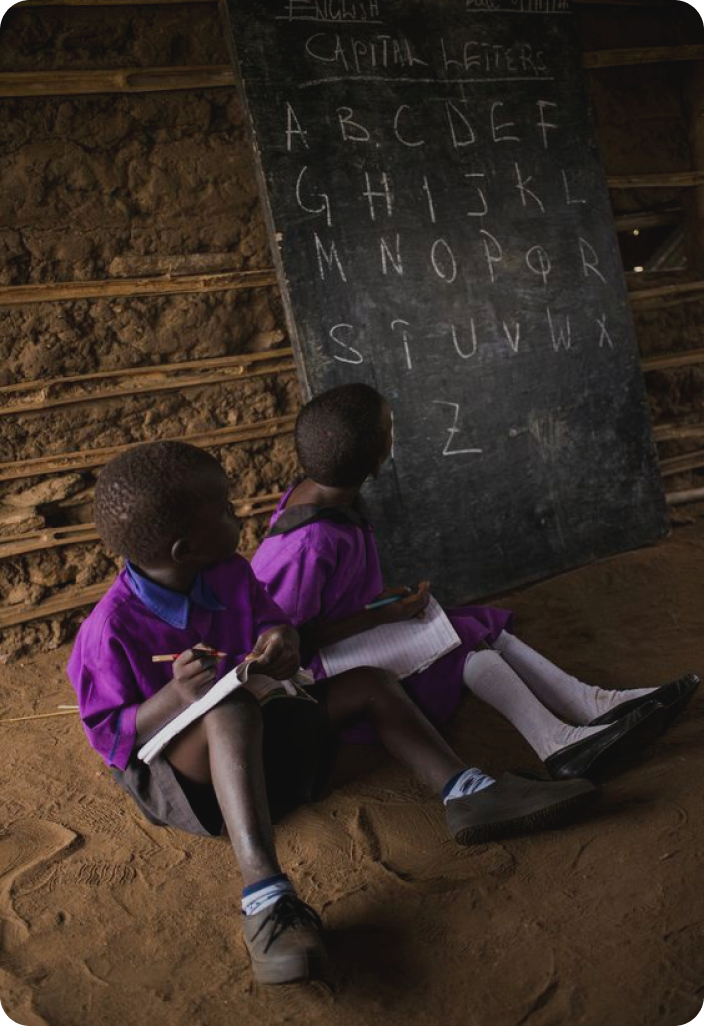 ENGLISH
CAPITAL LETTERS
A B. C D E F
G H I J K L
M N O P Q R
S T U V W X
Z